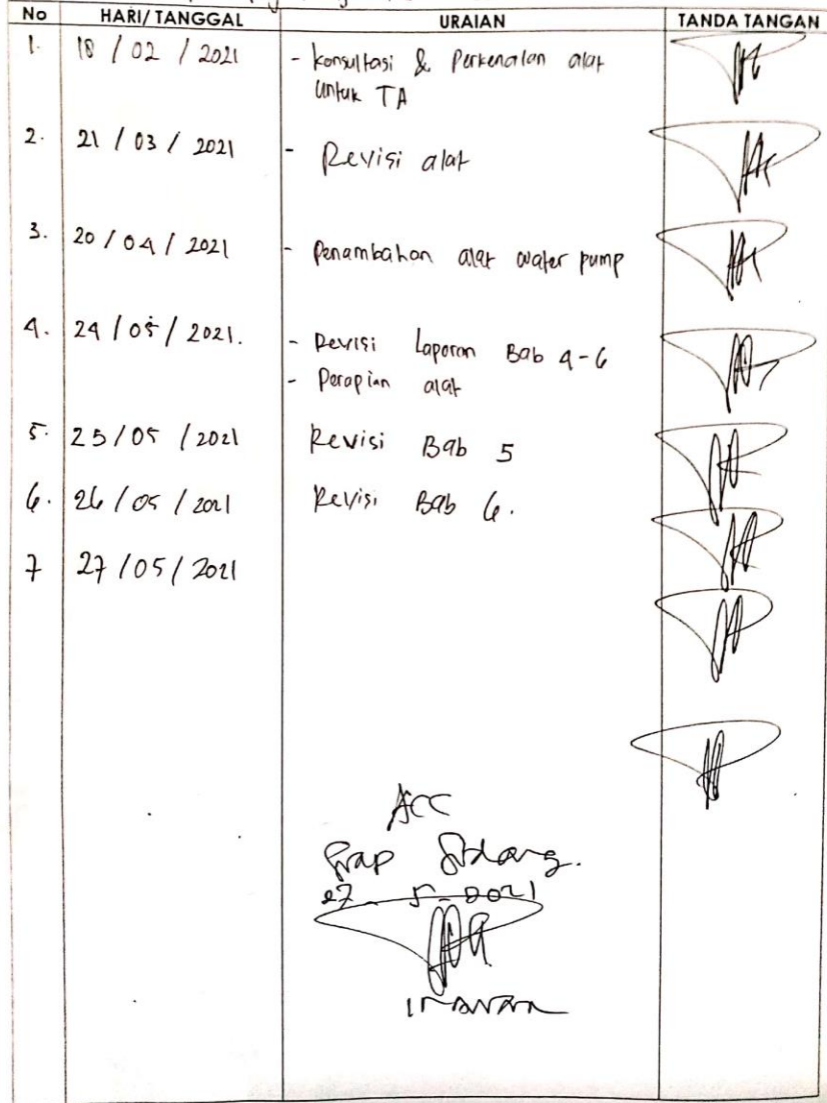 No HARI/TANGGAL URAIAN TANDA TANGAN
1. 18 / 02 / 2021 - konsultasi & Perkenalan alat
untuk TA
2. 21 / 03 / 2021 - Revisi alat
3. 20 / 04 / 2021 - Penambahan alat water pump
4. 24 / 05 / 2021. - Revisi Laporan Bab 4-6
- Perapian alat
5. 25/05 /2021 Revisi Bab 5
6. 26/05 /2021 Revisi Bab 6.
7 27/05/2021
Acc
Siap Sidang.
27-5-2021